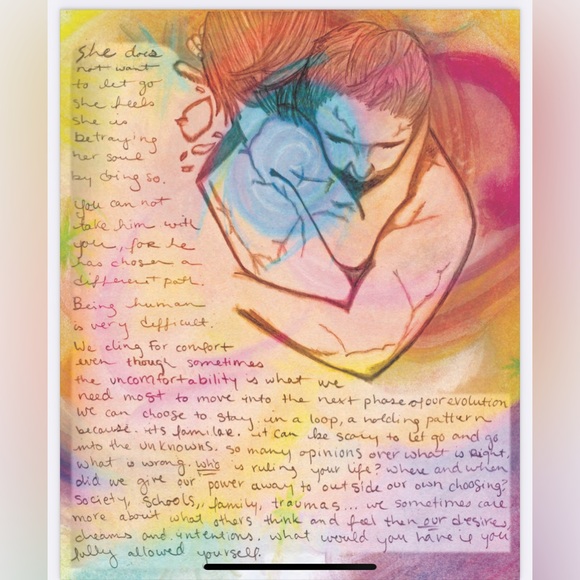 She does
not want
to let go
she feels
she is
betraying
her soul
by doing so.
You can not
take him with
you, for he
has chosen a
different path.
Being human
is very difficult.
We cling for comfort
even though sometimes
the uncomfortability is what we
need most to move into the next phase of our evolution
we can choose to stay in a loop, a holding pattern
because its familar. it can be scary to let go and go
into the unknowns. so many opinions over what is right,
what is wrong. who is ruling your life? where and when
did we give our power away to outside our own choosing?
society, schools, family, traumas... we sometimes care
more about what others think and feel then our desires,
dreams and intentions. what would you have if you
fully allowed yourself.